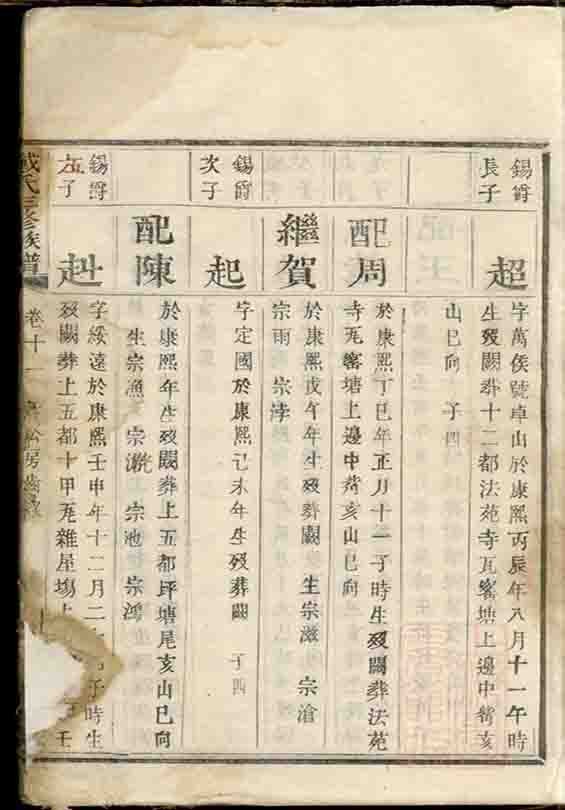 錫爵
長子
超
字萬侯號卓山於康熙丙辰年八月十一午時
生歿闕葬十二都法苑寺瓦窰塘上邊中嵜亥
山巳向 子四
配周
於康熙丁巳年正月十一子時生歿闕葬法苑
寺瓦窰塘上邊中嵜亥山巳向
繼賀
於康熙戊午年生歿葬闕 生宗滋 宗滄
宗雨 宗浡
錫爵
次子
起
字定國於康熙己未年生歿葬闕 子四
配陳
於康熙年生歿闕葬上五都坪塘尾亥山巳向
生宗漁 宗洸 宗池 宗鴻
錫爵
五子
赳
字綏遠於康熙壬申年十二月二 子時生
歿闕葬上五都十甲瓦雜屋塲上 壬
氏三修族譜 卷十一 房齒錄